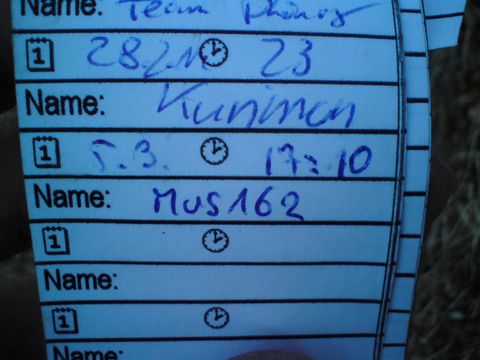 Name: Team
1 23
Name: Kunimon
1 5.3. 17:10
Name: MUS162
1
Name:
1
Name: